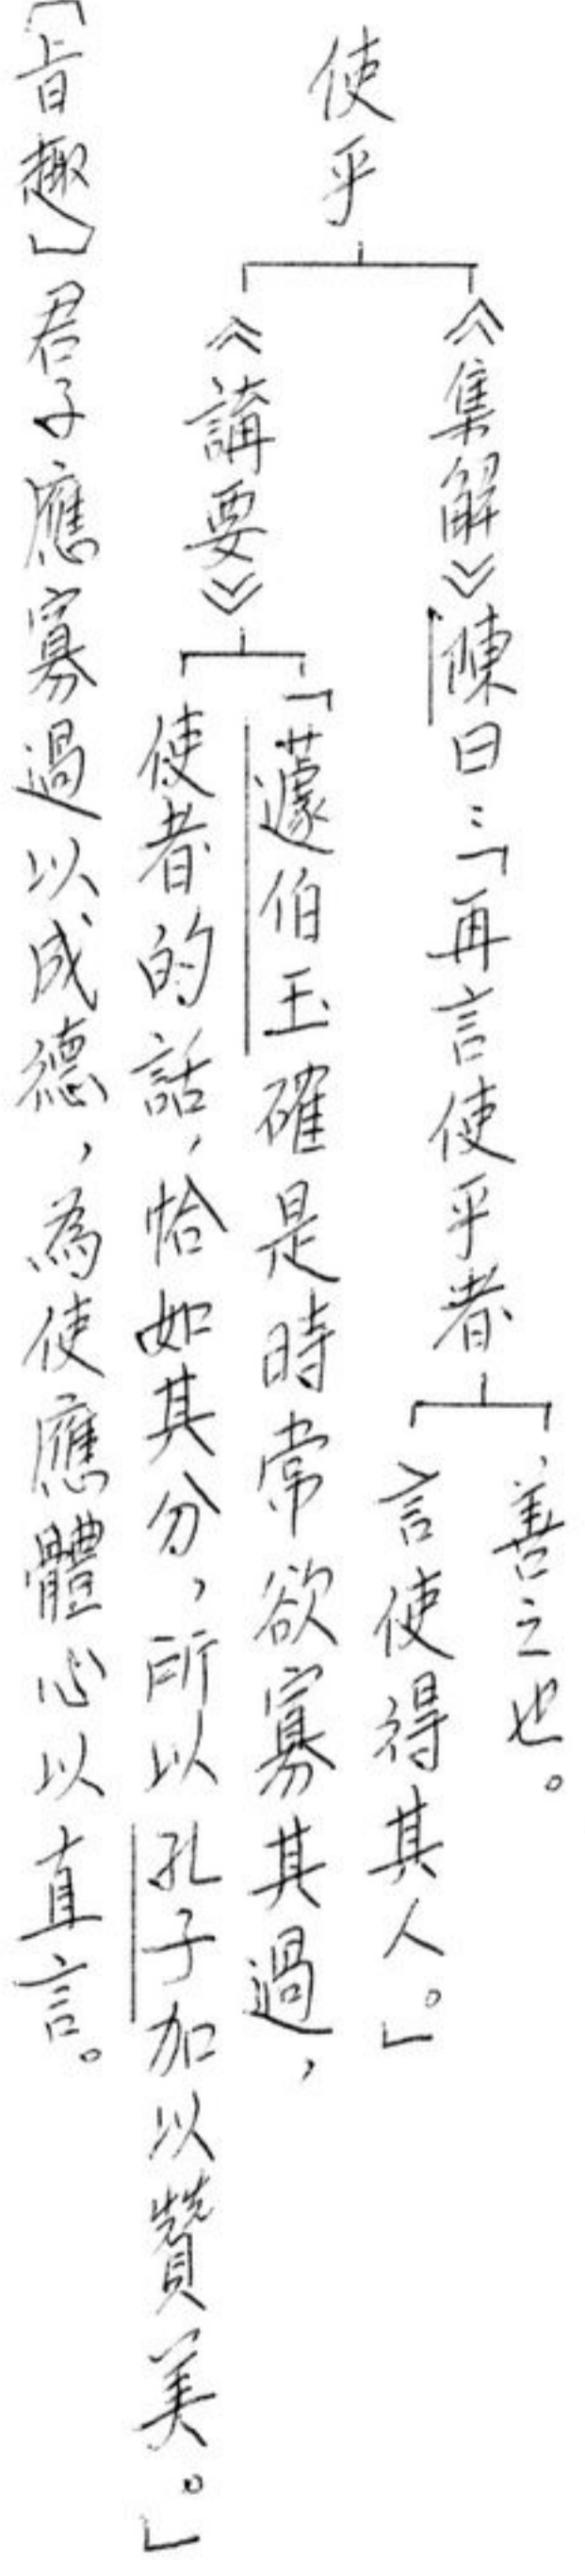 使乎
《集解》陳曰：「再言使乎者
善之也。
言使得其人。」
《講要》
「蘧伯玉確是時常欲寡其過，
使者的話，恰如其分，所以孔子加以贊美。」
〔旨趣〕君子應寡過以成德，為使應體心以直言。